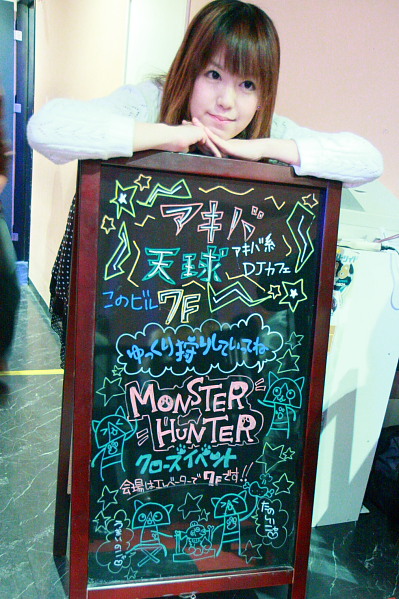 アキバ
天球
アキバ系
DJカフェ
このビル
7F
ゆっくり狩りしていてね
MONSTER
HUNTER
クローズイベント
会場はエレベーターで7Fです!!